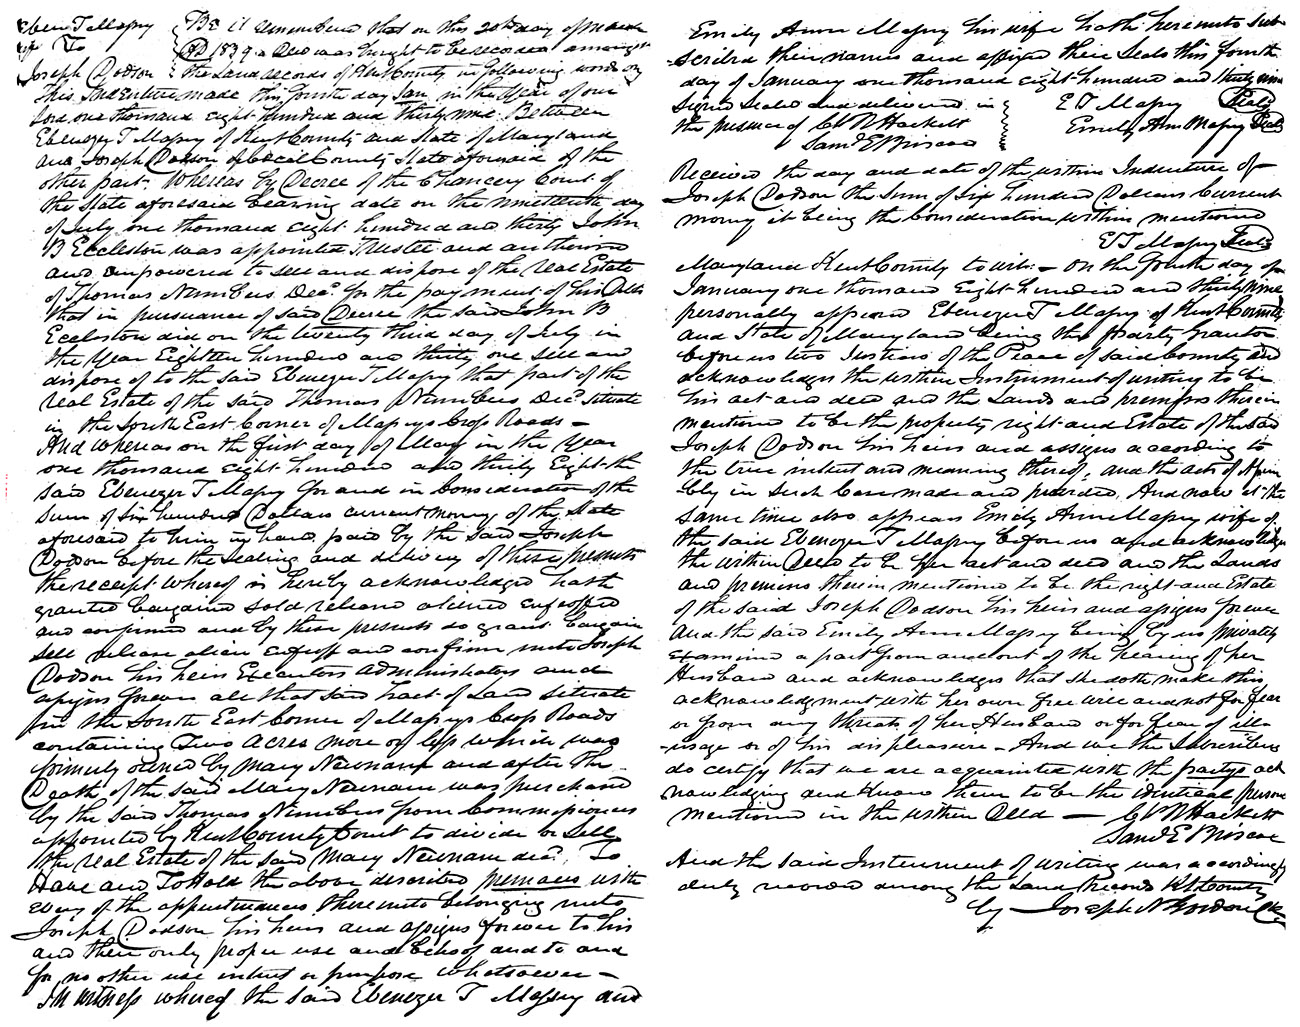 Eben T Massy
To
Joseph Dodson
Be it remembered that on this 20th day of March
1839 a Deed was brought to be recorded among
the Land records of Kent County in following words
This Indenture made this fourth day Jan in the Year of our
Lord one thousand eight hundred and thirty nine Between
Ebenezer T Massy of Kent County and State of Maryland
and Joseph Dodson of Cecil County State aforesaid of the
other part. Whereas by Decree of the Chancery Court of
the State aforesaid bearing date on the nineteenth day
of July one thousand eight hundred and thirty John
B Eccleston was appointed Trustee and authorised
and empowered to sell and dispose of the real Estate
of Thomas Numbers Decd for the payment of his Debts
that in pursuance of said Decree the said John B
Eccleston did on the twenty third day of July in
the Year Eighteen hundred and thirty one sell and
dispose of to the said Ebenezer T Massy that part of the
real Estate of the said Thomas Numbers Decd situate
in the South East Corner of Massys Cross Roads –
And whereas on the first day of May in the Year
one thousand eight hundred and thirty Eight the
said Ebenezer T Massy for and in Consideration of the
sum of Six hundred Dollars current money of the State
aforesaid to him in hand paid by the said Joseph
Dodson before the sealing and delivery of these presents
the receipt whereof is hereby acknowledged hath
granted bargained sold released aliened enfeoffed
and confirmed and by these presents do grant bargain
sell release alien enfeoff and confirm unto Joseph
Dodson his heirs Executors administrators and
assigns forever all that said tract of Land situate
in the South East Corner of Massys Cross Roads
containing Two Acres more or less which was
formerly owned by Mary Newnam and after the
Death of the said Mary Newnam was purchased
by the said Thomas Numbers from Commissioners
appointed by Kent County Court to divide or Sell
the real Estate of the said Mary Newnam decd. To
Have and To Hold the above described premises with
every of the appurtenances thereunto belonging unto
Joseph Dodson his heirs and assigns forever to his
and their only proper use and behoof and to and
for no other use intent or purpose whatsoever –
In witness whereof the said Ebenezer T Massey and
Emily Ann Massy his wife hath hereunto sub-
scribed their names and affixed their seals this fourth
day of January one thousand eight hundred and thirty nine
Signed Sealed and delivered in E T Massy Seal
the presence of C W Hackett Emily Ann Massy Seal
Saml E Briscoe
Received the day and date of the within Indenture of
Joseph Dodson the Sum of Six hundred Dollars Current
money it being the Consideration within mentioned
E T Massy Seal
Maryland Kent County to wit: – On the fourth day of
January one thousand Eight hundred and thirty nine
personally appeared Ebenezer T Massy of Kent County
and State of Maryland being the party Grantor
before us two Justices of the Peace of said County and
acknowledges the within Instrument of writing to be
his act and deed and the Lands and premises therein
mentioned to be the property right and Estate of the said
Joseph Dodson his heirs and assigns according to
the true intent and meaning thereof, and the acts of Assem
bly in such Case made and provided. And now at the
same time also appears Emily Ann Massy wife of
the said Ebenezer T Massy before us and acknowledges
the within Deed to be her act and deed and the Lands
and premises therein mentioned to be the right and Estate
of the said Joseph Dodson his heirs and assigns forever
And the said Emily Ann Massy being by us privately
examined apart from and out of the hearing of her
Husband and acknowledges that she doth make this
acknowledgment with her own free will and not for fear
or from any threats of her Husband or for fear of ill
usage or of his displeasure – And we the Subscribers
do certify that we are acquainted with the partys ack
nowledging and know them to be the identical persons
mentioned in the within Deed – C W Hackett
Saml E Briscoe
And the said Instrument of writing was accordingly
duly recorded among the Land Records Kt County
by Joseph N Gordon Clk